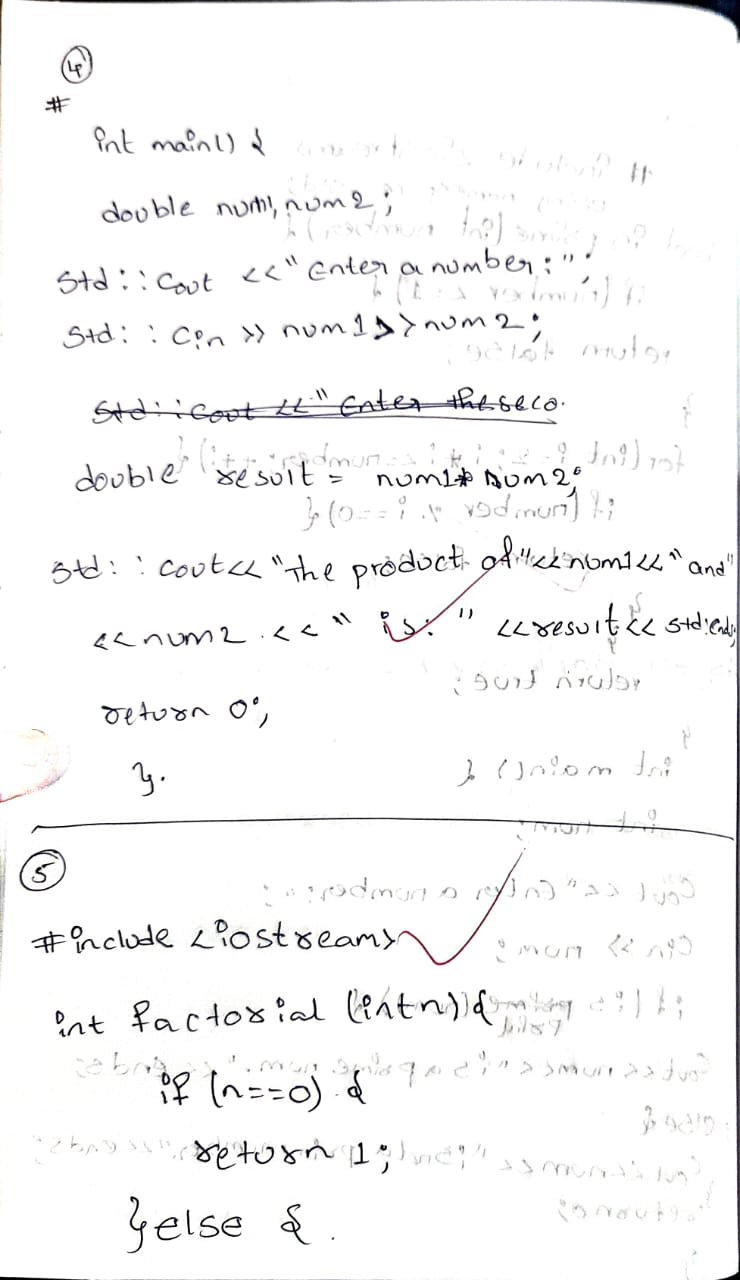 4
#
int main() {
double num1, num2;
Std::Cout <<"Enter a number:";
Std::Cin >> num1>>num2;
Std::Cout <<"Enter the seco.
double result = num1* num2;
Std::cout<< "The product of"<<num1<<" and"
<<num2.<<" is:" <<result<< std:endl;
return 0;
}.
5
#include <iostream>
int factorial (int n) {
if (n==0) {
return 1;
} else {.